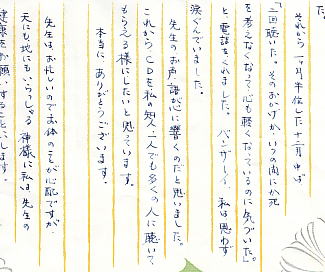 た。
それから一ヶ月半位した十二月中ば
「二回聴いた。そのおかげか、いつの間にか死
を考えなくなって心も軽くなっているのに気づいた」
と、電話をくれました。バンザーイ、私は思わず
涙ぐんでいました。
先生のお声と語が心に響くのだと思いました。
これからCDを私の知人、一人でも多くの人に聴いて
もらえる様にしたいと思っています。
本当に、ありがとうございます。
先生は、お忙しいのでお体の事が心配ですが
天にも地にもいらっしゃる神様に私は、先生の
健康をお願いすることにします。